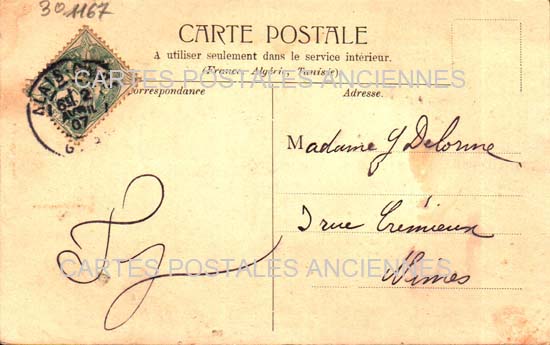 30 1167
CARTE POSTALE
A utiliser seulement dans le service intérieur.
(France, Algérie, Tunisie)
CARTES POSTALES ANCIENNES
Correspondance
Adresse.
ALAIS
07
CARTES POSTALES ANCIENNES
Madame Y Delorme
3 rue Crémieux
CARTES POSTALES ANCIENNES
Nimes